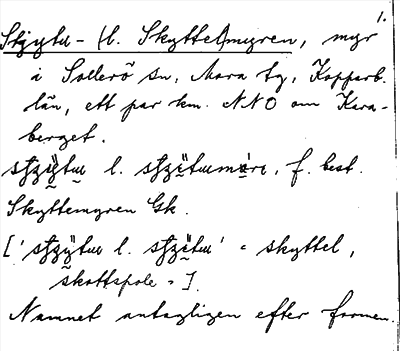 1.
Skyttu- (l. Skyttel)myren, myr
i Sollerö sn, Mora tg, Kopparb.
län, ett par km. NNO om Kara-
berget.
l. , f. best.
Skyttemyren Gk.
[' l. ' = skyttel,
skottspole = ].
Namnet antagligen efter formen.